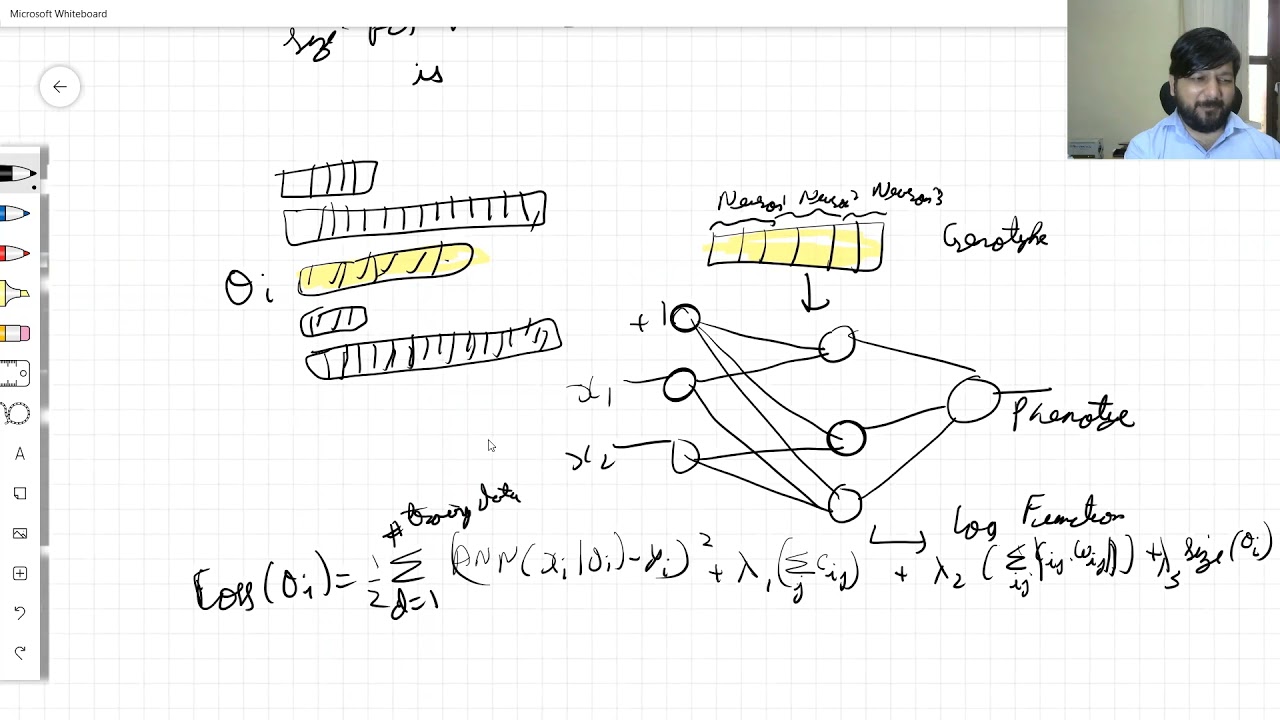 Microsoft Whiteboard
is
Neuron1 Neuron2 Neuron3
Genotype
θi
+1
x1
x2
Phenotye
# training data
Log Function
Loss(θi) = 1/2 Σ d=1 (ANN(xi|θi) - yi)² + λ1 (Σ j Cij) + λ2 (Σ ij |Cij.ωij|) + λ3 size(θi)
A